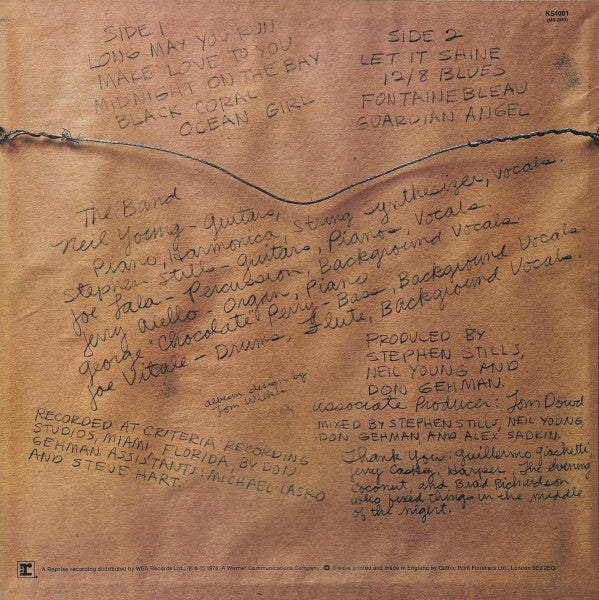 K54081
(MS 2253)
SIDE 1
LONG MAY YOU RUN
MAKE LOVE TO YOU
MIDNIGHT ON THE BAY
BLACK CORAL
OCEAN GIRL
SIDE 2
LET IT SHINE
12/8 BLUES
FONTAINEBLEAU
GUARDIAN ANGEL
The Band
Neil Young - Guitars,
Piano, Harmonica, String Synthesizer, Vocals.
Stephen Stills - Guitars, Piano, Vocals.
Joe Lala - Percussion, Background Vocals.
Jerry Aiello - Organ, Piano
George "Chocolate" Perry - Bass, Background Vocals.
Joe Vitale - Drums, Flute, Background Vocals.
album design by
Tom Wilkes
PRODUCED BY:
STEPHEN STILLS,
NEIL YOUNG AND
DON GEHMAN.
Associate Producer: Tom Dowd
MIXED BY STEPHEN STILLS, NEIL YOUNG,
DON GEHMAN, AND ALEX SADKIN.
RECORDED AT CRITERIA RECORDING
STUDIOS, MIAMI FLORIDA, BY DON
GEHMAN ASSISTANTS: MICHAEL LASKO
AND STEVE HART.
Thank You: Guillermo Giachetti,
Jerry Caskey, Harper, The evening
Coconut, and Brad Richardson
who fixed things in the middle
of the night.
r
A Reprise recording distributed by WEA Records Ltd., ℗ & © 1976, A Warner Communications Company. Sleeve printed and made in England by Gothic Print Finishers Ltd., London SE9 2EQ